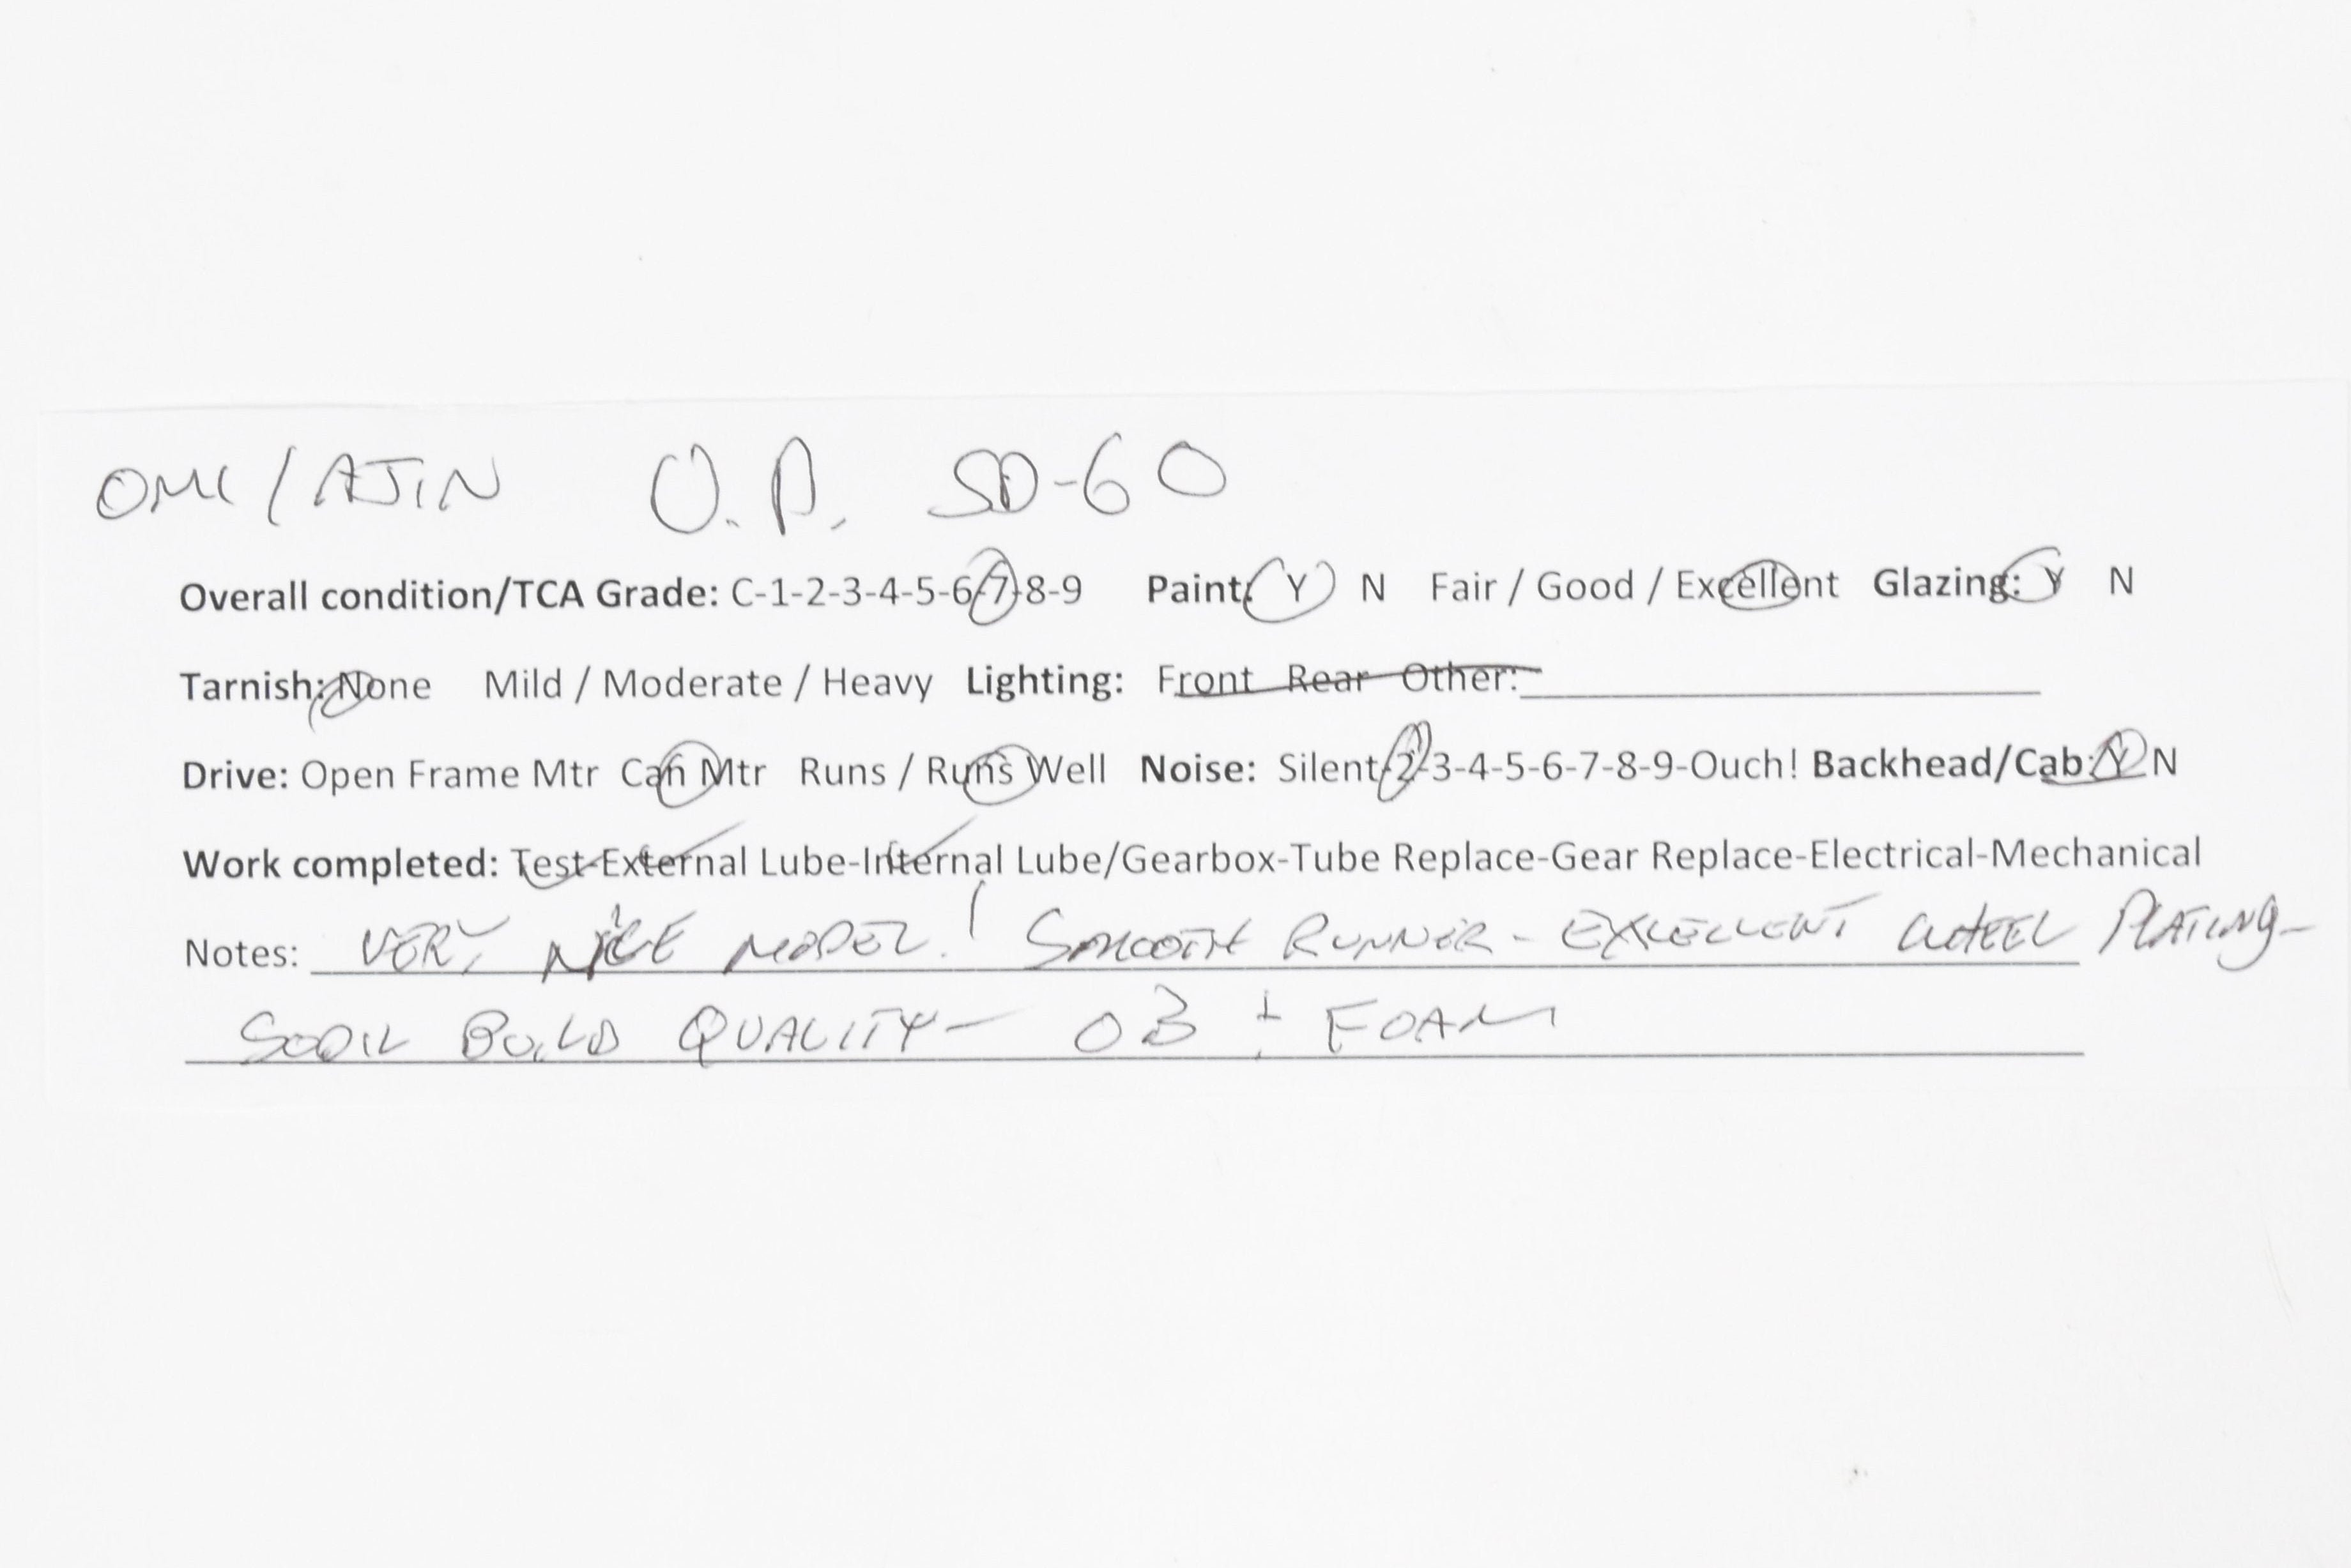 OMI/AJIN U.P. SD-60
Overall condition/TCA Grade: C-1-2-3-4-5-6-7-8-9 Paint: Y N Fair / Good / Excellent Glazing: Y N
Tarnish: None Mild / Moderate / Heavy Lighting: Front Rear Other:
Drive: Open Frame Mtr Can Mtr Runs / Runs Well Noise: Silent-2-3-4-5-6-7-8-9-Ouch! Backhead/Cab: Y N
Work completed: Test-External Lube-Internal Lube/Gearbox-Tube Replace-Gear Replace-Electrical-Mechanical
Notes: VERY NICE MODEL! SMOOTH RUNNER - EXCELLENT WHEEL PLATING-
BUILD QUALITY- OB + FOAM